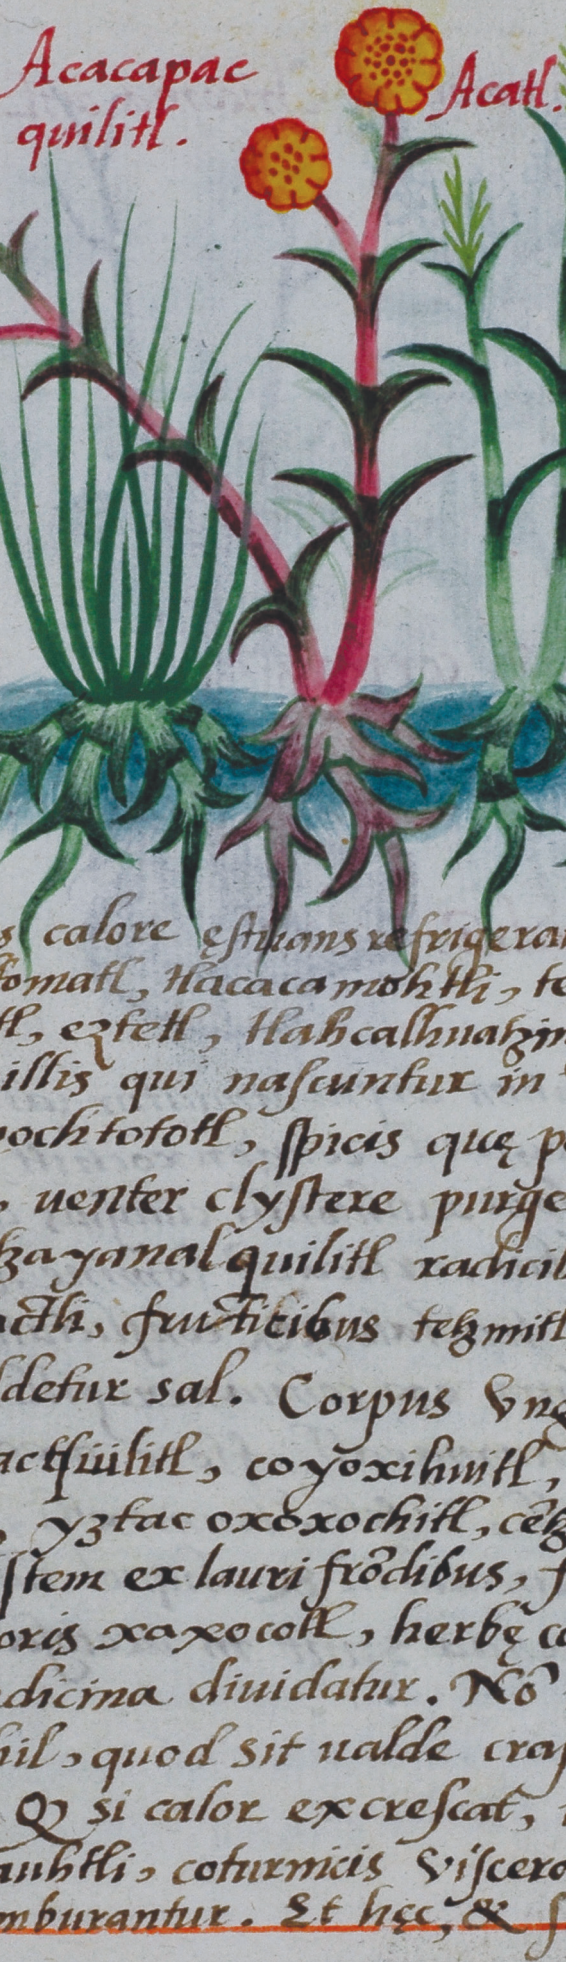 Acacapac
quilitl.
Acatl.
calore ęstuans refrigera
tomatl, tlacacamohtli, te
tl, eztetl, tlahcalhuatzin
illis qui nascuntur in
ochtototl, spicis quę p
, uenter clystere purge
tzayanalquilitl radicib
actli, fruticibus tetzmitl
detur sal. Corpus Vng
coyoxihuitl,
, yztac oxoxochitl, cētz
stem ex lauri frōdibus, f
oris xaxocotl, herbę co
dicina diuidatur. Nō
hil, quod sit ualde cras
Q si calor excrescat,
auhtli, coturnicis viscera
mburantur. Et hęc, & s